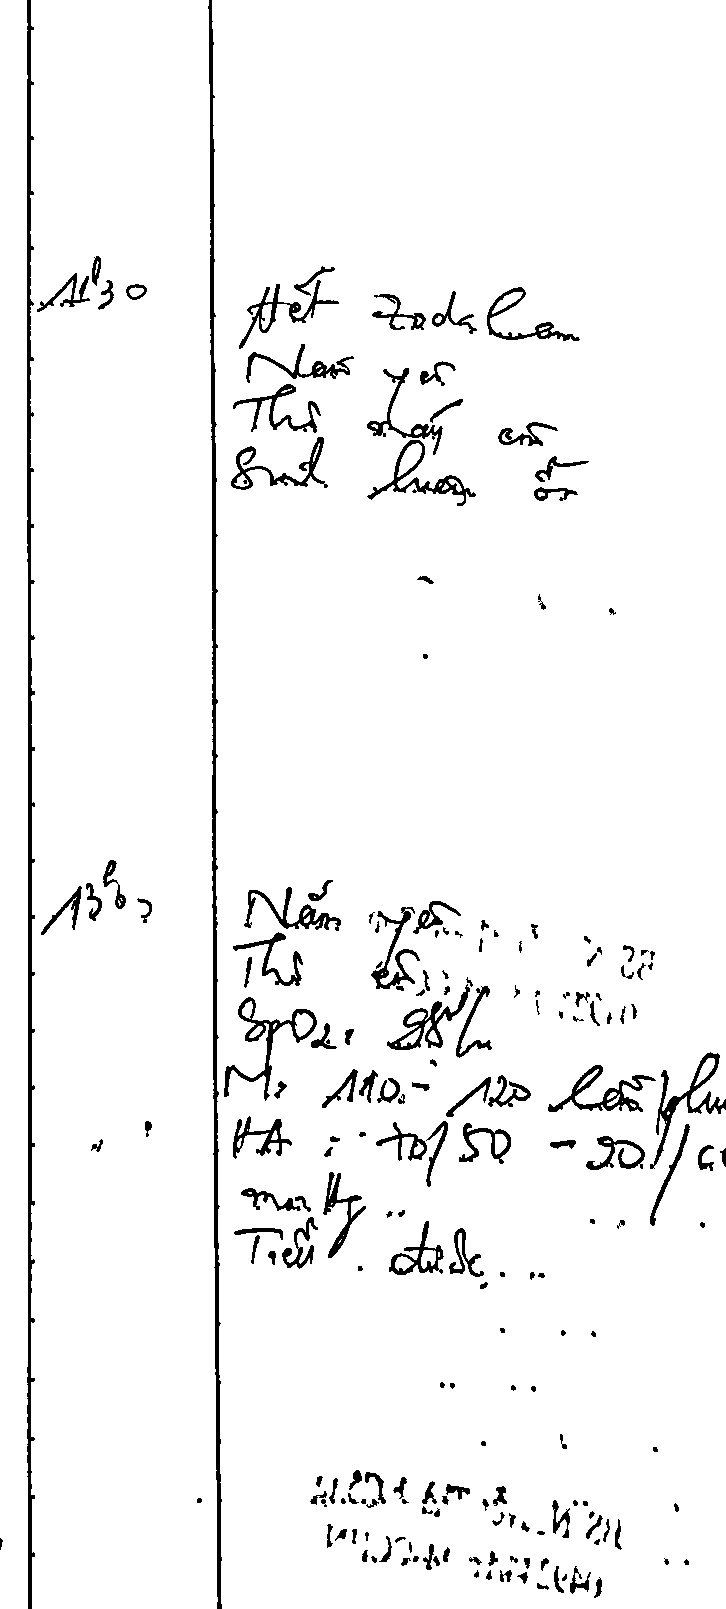 11h30
Hết Zodalam
Nằm yên
Thở máy êm
Sinh hiệu ổn
13h
Nằm yên
Thở êm
SpO2: 98%
M: 110 - 120 lần/phú
HA: 70/50 - 90/60
mmHg
Tiểu được